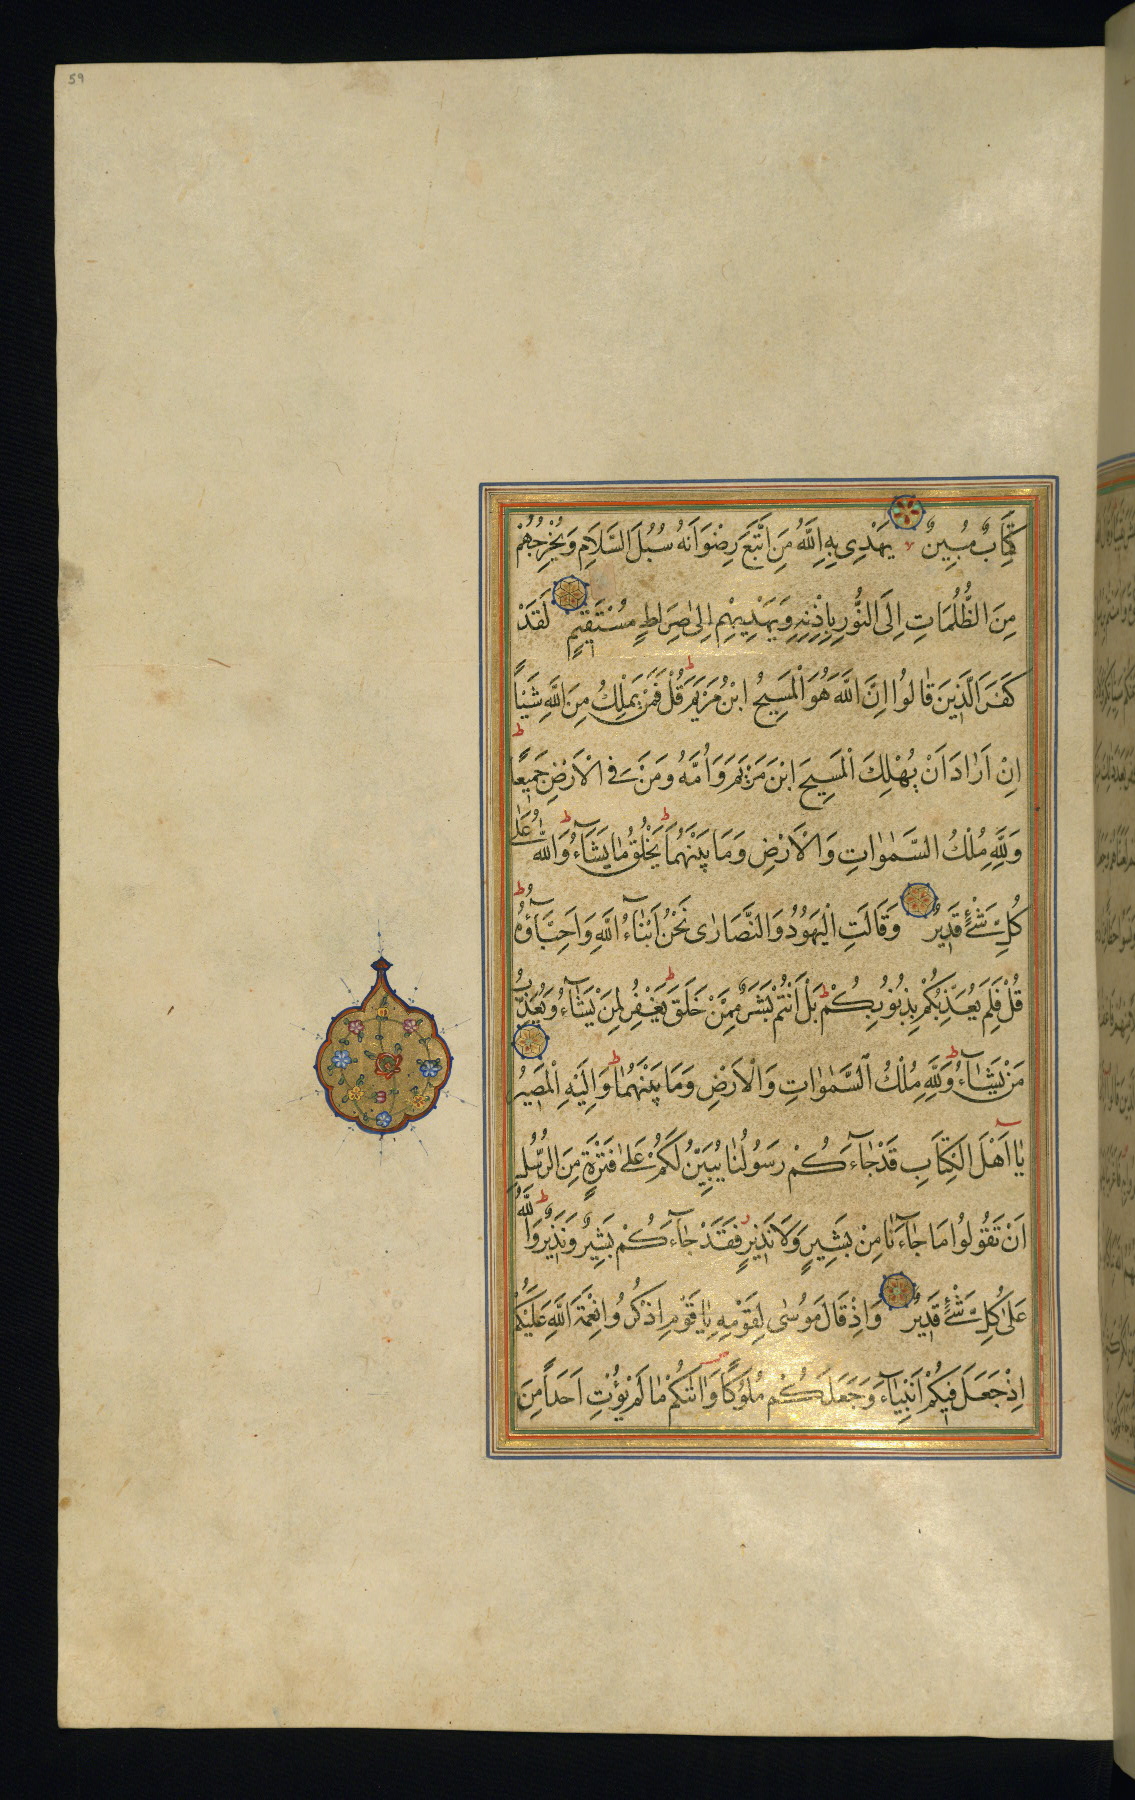 59
كِتَابٌ مُبِينٌ يَهْدِى بِهِ اللَّهُ مَنِ اتَّبَعَ رِضْوَانَهُ سُبُلَ السَّلَامِ وَيُخْرِجُهُمْ
مِنَ الظُّلُمَاتِ اِلَى النُّورِ بِاِذْنِهِ وَيَهْدِيهِمْ اِلىٰ صِرَاطٍ مُسْتَقِيمٍ لَقَدْ
كَفَرَ الَّذِينَ قَالُوا اِنَّ اللَّهَ هُوَ الْمَسِيحُ ابْنُ مَرْيَمَ قُلْ فَمَنْ يَمْلِكُ مِنَ اللَّهِ شَيْئاً
اِنْ اَرَادَ اَنْ يُهْلِكَ الْمَسِيحَ ابْنَ مَرْيَمَ وَاُمَّهُ وَمَنْ فِى الْاَرْضِ جَمِيعًا
وَلِلَّهِ مُلْكُ السَّمٰوَاتِ وَالْاَرْضِ وَمَا بَيْنَهُمَا يَخْلُقُ مَا يَشَآءُ وَاللَّهُ عَلىٰ
كُلِّ شَىْءٍ قَدِيرٌ وَقَالَتِ الْيَهُودُ وَالنَّصَارٰى نَحْنُ اَبْنَآءُ اللَّهِ وَاَحِبَّآؤُهُ
قُلْ فَلِمَ يُعَذِّبُكُمْ بِذُنُوبِكُمْ بَلْ اَنْتُمْ بَشَرٌ مِمَّنْ خَلَقَ يَغْفِرُ لِمَنْ يَشَآءُ وَيُعَذِّبُ
مَنْ يَشَآءُ وَلِلَّهِ مُلْكُ السَّمٰوَاتِ وَالْاَرْضِ وَمَا بَيْنَهُمَا وَاِلَيْهِ الْمَصِيرُ
يَا اَهْلَ الْكِتَابِ قَدْ جَآءَكُمْ رَسُولُنَا يُبَيِّنُ لَكُمْ عَلىٰ فَتْرَةٍ مِنَ الرُّسُلِ
اَنْ تَقُولُوا مَا جَآءَنَا مِنْ بَشِيرٍ وَلَا نَذِيرٍ فَقَدْ جَآءَكُمْ بَشِيرٌ وَنَذِيرٌ وَاللَّهُ
عَلىٰ كُلِّ شَىْءٍ قَدِيرٌ وَاِذْ قَالَ مُوسٰى لِقَوْمِهِ يَا قَوْمِ اذْكُرُوا نِعْمَةَ اللَّهِ عَلَيْكُمْ
اِذْ جَعَلَ فِيكُمْ اَنْبِيَآءَ وَجَعَلَكُمْ مُلُوكًا وَاٰتٰكُمْ مَا لَمْ يُؤْتِ اَحَداً مِنَ